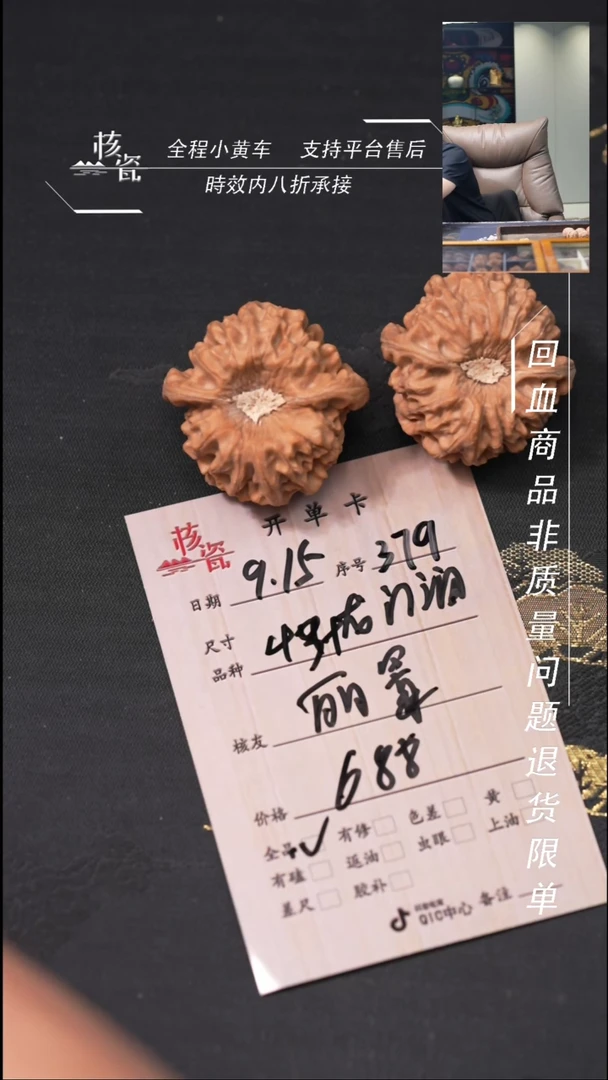 核瓷
全程小黄车 支持平台售后
時效内八折承接
回血商品非质量问题退货限单
核瓷
开单卡
日期 9.15 序号 379
尺寸
品种
核友
价格 688
全品 ✓ 有修 色差 黄
有磕 返油 虫眼 上油
差尺 胶补
抖音电商
QIC中心 备注